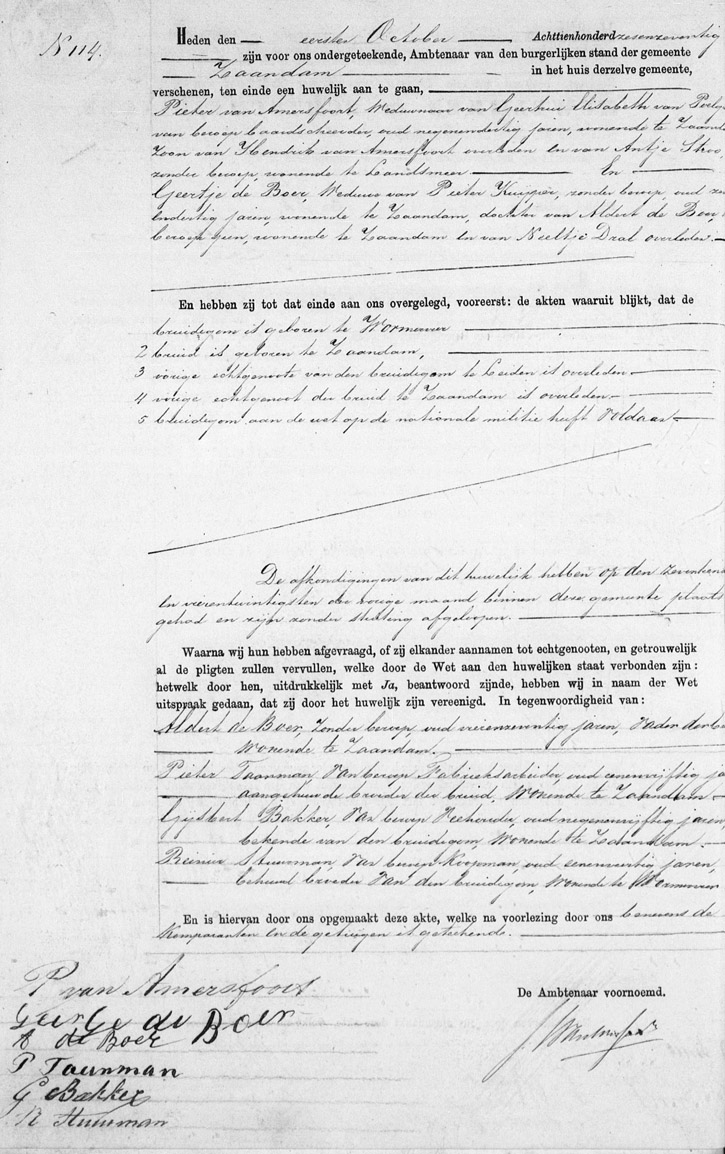 N 114.
Heden den eersten October Achttienhonderd zesenzeventig
zijn voor ons ondergeteekende, Ambtenaar van den burgerlijken stand der gemeente
Zaandam in het huis derzelve gemeente,
verschenen, ten einde een huwelijk aan te gaan,
Pieter van Amersfoort, Weduwnaar van Geertrui Elisabeth van
van beroep baardscheerder, oud negenendertig jaren, wonende te Zaand
Zoon van Hendrik van Amersfoort overleden en van Antje
zonder beroep, wonende te Landsmeer En
Geertje de Boer, Weduwe van Pieter Kuijper, zonder beroep, oud
endertig jaren, wonende te Zaandam, dochter van Aldert de Boer,
beroep geen, wonende te Zaandam en van Neeltje Dral overleden.
En hebben zij tot dat einde aan ons overgelegd, vooreerst: de akten waaruit blijkt, dat de
bruidegom is geboren te Wormerveer
2 bruid is geboren te Zaandam,
3 vorige echtgenoote van den bruidegom te Leiden is overleden
4 vorige echtgenoot der bruid te Zaandam is overleden.
5 bruidegom aan de wet op de nationale militie heeft voldaan
De afkondigingen van dit huwelijk hebben op den
en vierentwintigsten der vorige maand binnen deze gemeente plaats
gehad en zijn zonder stuiting afgeloopen.
Waarna wij hun hebben afgevraagd, of zij elkander aannamen tot echtgenooten, en getrouwelijk
al de pligten zullen vervullen, welke door de Wet aan den huwelijken staat verbonden zijn:
hetwelk door hen, uitdrukkelijk met Ja, beantwoord zijnde, hebben wij in naam der Wet
uitspraak gedaan, dat zij door het huwelijk zijn vereenigd. In tegenwoordigheid van:
Aldert de Boer, Zonder beroep, oud vierenzeventig jaren, Vader der
Wonende te Zaandam.
Pieter Taanman Van beroep Fabrieksarbeider, oud eenenvijftig ja
aangehuwde broeder der bruid, Wonende te Zaandam
Gijsbert Bakker, Van beroep Veehouder, oud negenenvijftig jaren
bekende van den bruidegom, Wonende te Zaandam.
Reinier Stuurman, Van beroep Koopman, oud jaren,
behuwd broeder Van den bruidegom, Wonende te Wormerveer
En is hiervan door ons opgemaakt deze akte, welke na voorlezing door ons benevens de
Komparanten en de getuigen is geteekend.
De Ambtenaar voornoemd.
P van Amersfoort
Geertje de Boer
A de Boer
P Taanman
G Bakker
R Stuurman